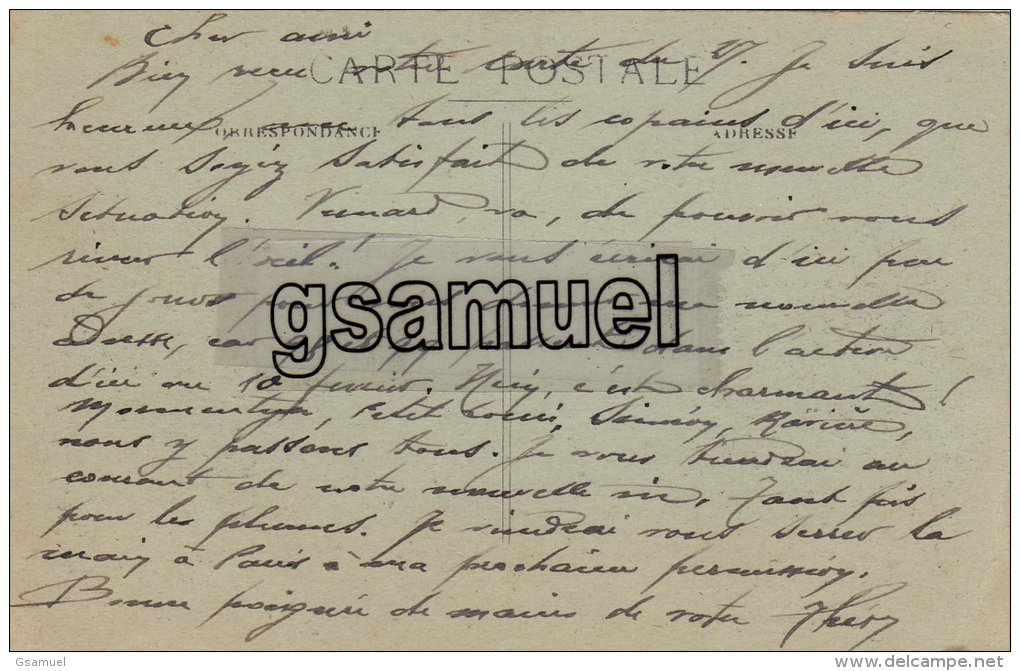 Cher ami
Bien reçu votre carte du 17. Je suis
CARTE POSTALE
heureux, avec tous les copains d'ici, que
CORRESPONDANCE
ADRESSE
vous soyez satisfait de votre nouvelle
situation. va, de pouvoir vous
rincer l'œil! Je vous écrirai d'ici peu
de jours nouvelle
adresse, car dans l'action
d'ici au 10 février. c'est charmant!
gsamuel
Petit Louis, Simon,
nous y passons tous. Je vous tiendrai au
courant de notre nouvelle vie. Tant pis
pour les plumes. Je viendrai vous serrer la
main à Paris à ma prochaine permission.
Bonne poignée de mains de votre Théry
Gsamuel
delcampe.net